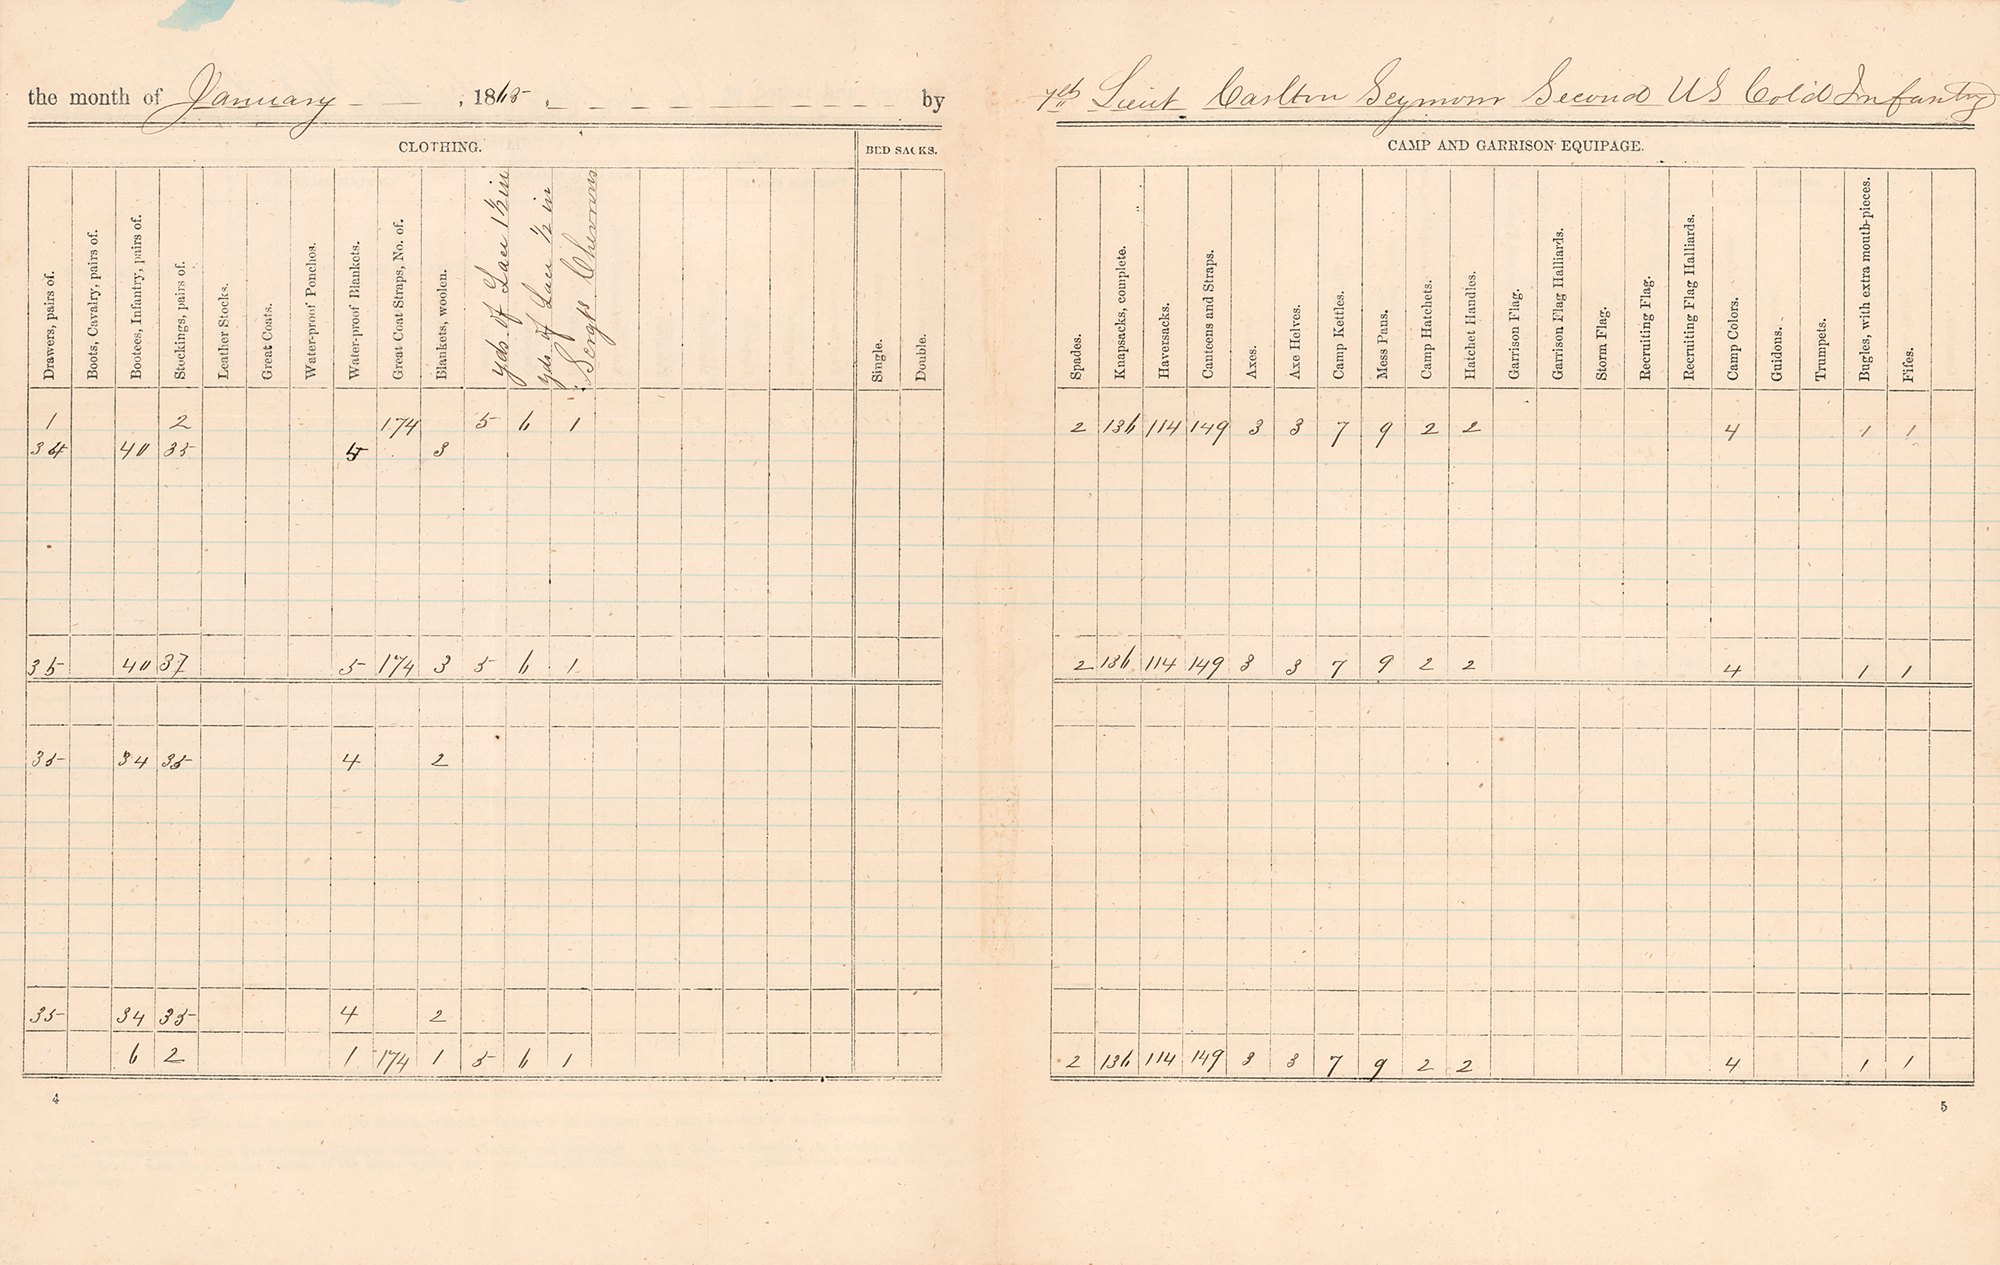 the month of January , 1865, by 1st Lieut Carlton Seymour Second US Cold Infantry
CLOTHING. BED SACKS. CAMP AND GARRISON EQUIPAGE.
Drawers, pairs of.
Boots, Cavalry, pairs of.
Bootees, Infantry, pairs of.
Stockings, pairs of.
Leather Stocks.
Great Coats.
Water-proof Ponchos.
Water-proof Blankets.
Great Coat Straps, No. of.
Blankets, woolen.
yds of Lace 1½ in
yds. of Lace ½ in
Sergts Chevrons
Single.
Double.
Spades.
Knapsacks, complete.
Haversacks.
Canteens and Straps.
Axes.
Axe Helves.
Camp Kettles.
Mess Pans.
Camp Hatchets.
Hatchet Handles.
Garrison Flag.
Garrison Flag Halliards.
Storm Flag.
Recruiting Flag.
Recruiting Flag Halliards.
Camp Colors.
Guidons.
Trumpets.
Bugles, with extra mouth-pieces.
Fifes.
1 2 174 5 6 1 2 136 114 149 3 3 7 9 2 2 4 1 1
34 40 35 5 3
35 40 37 5 174 3 5 6 1 2 136 114 149 3 3 7 9 2 2 4 1 1
35 34 35 4 2
35 34 35 4 2
6 2 1 174 1 5 6 1 2 136 114 149 3 3 7 9 2 2 4 1 1
4 5